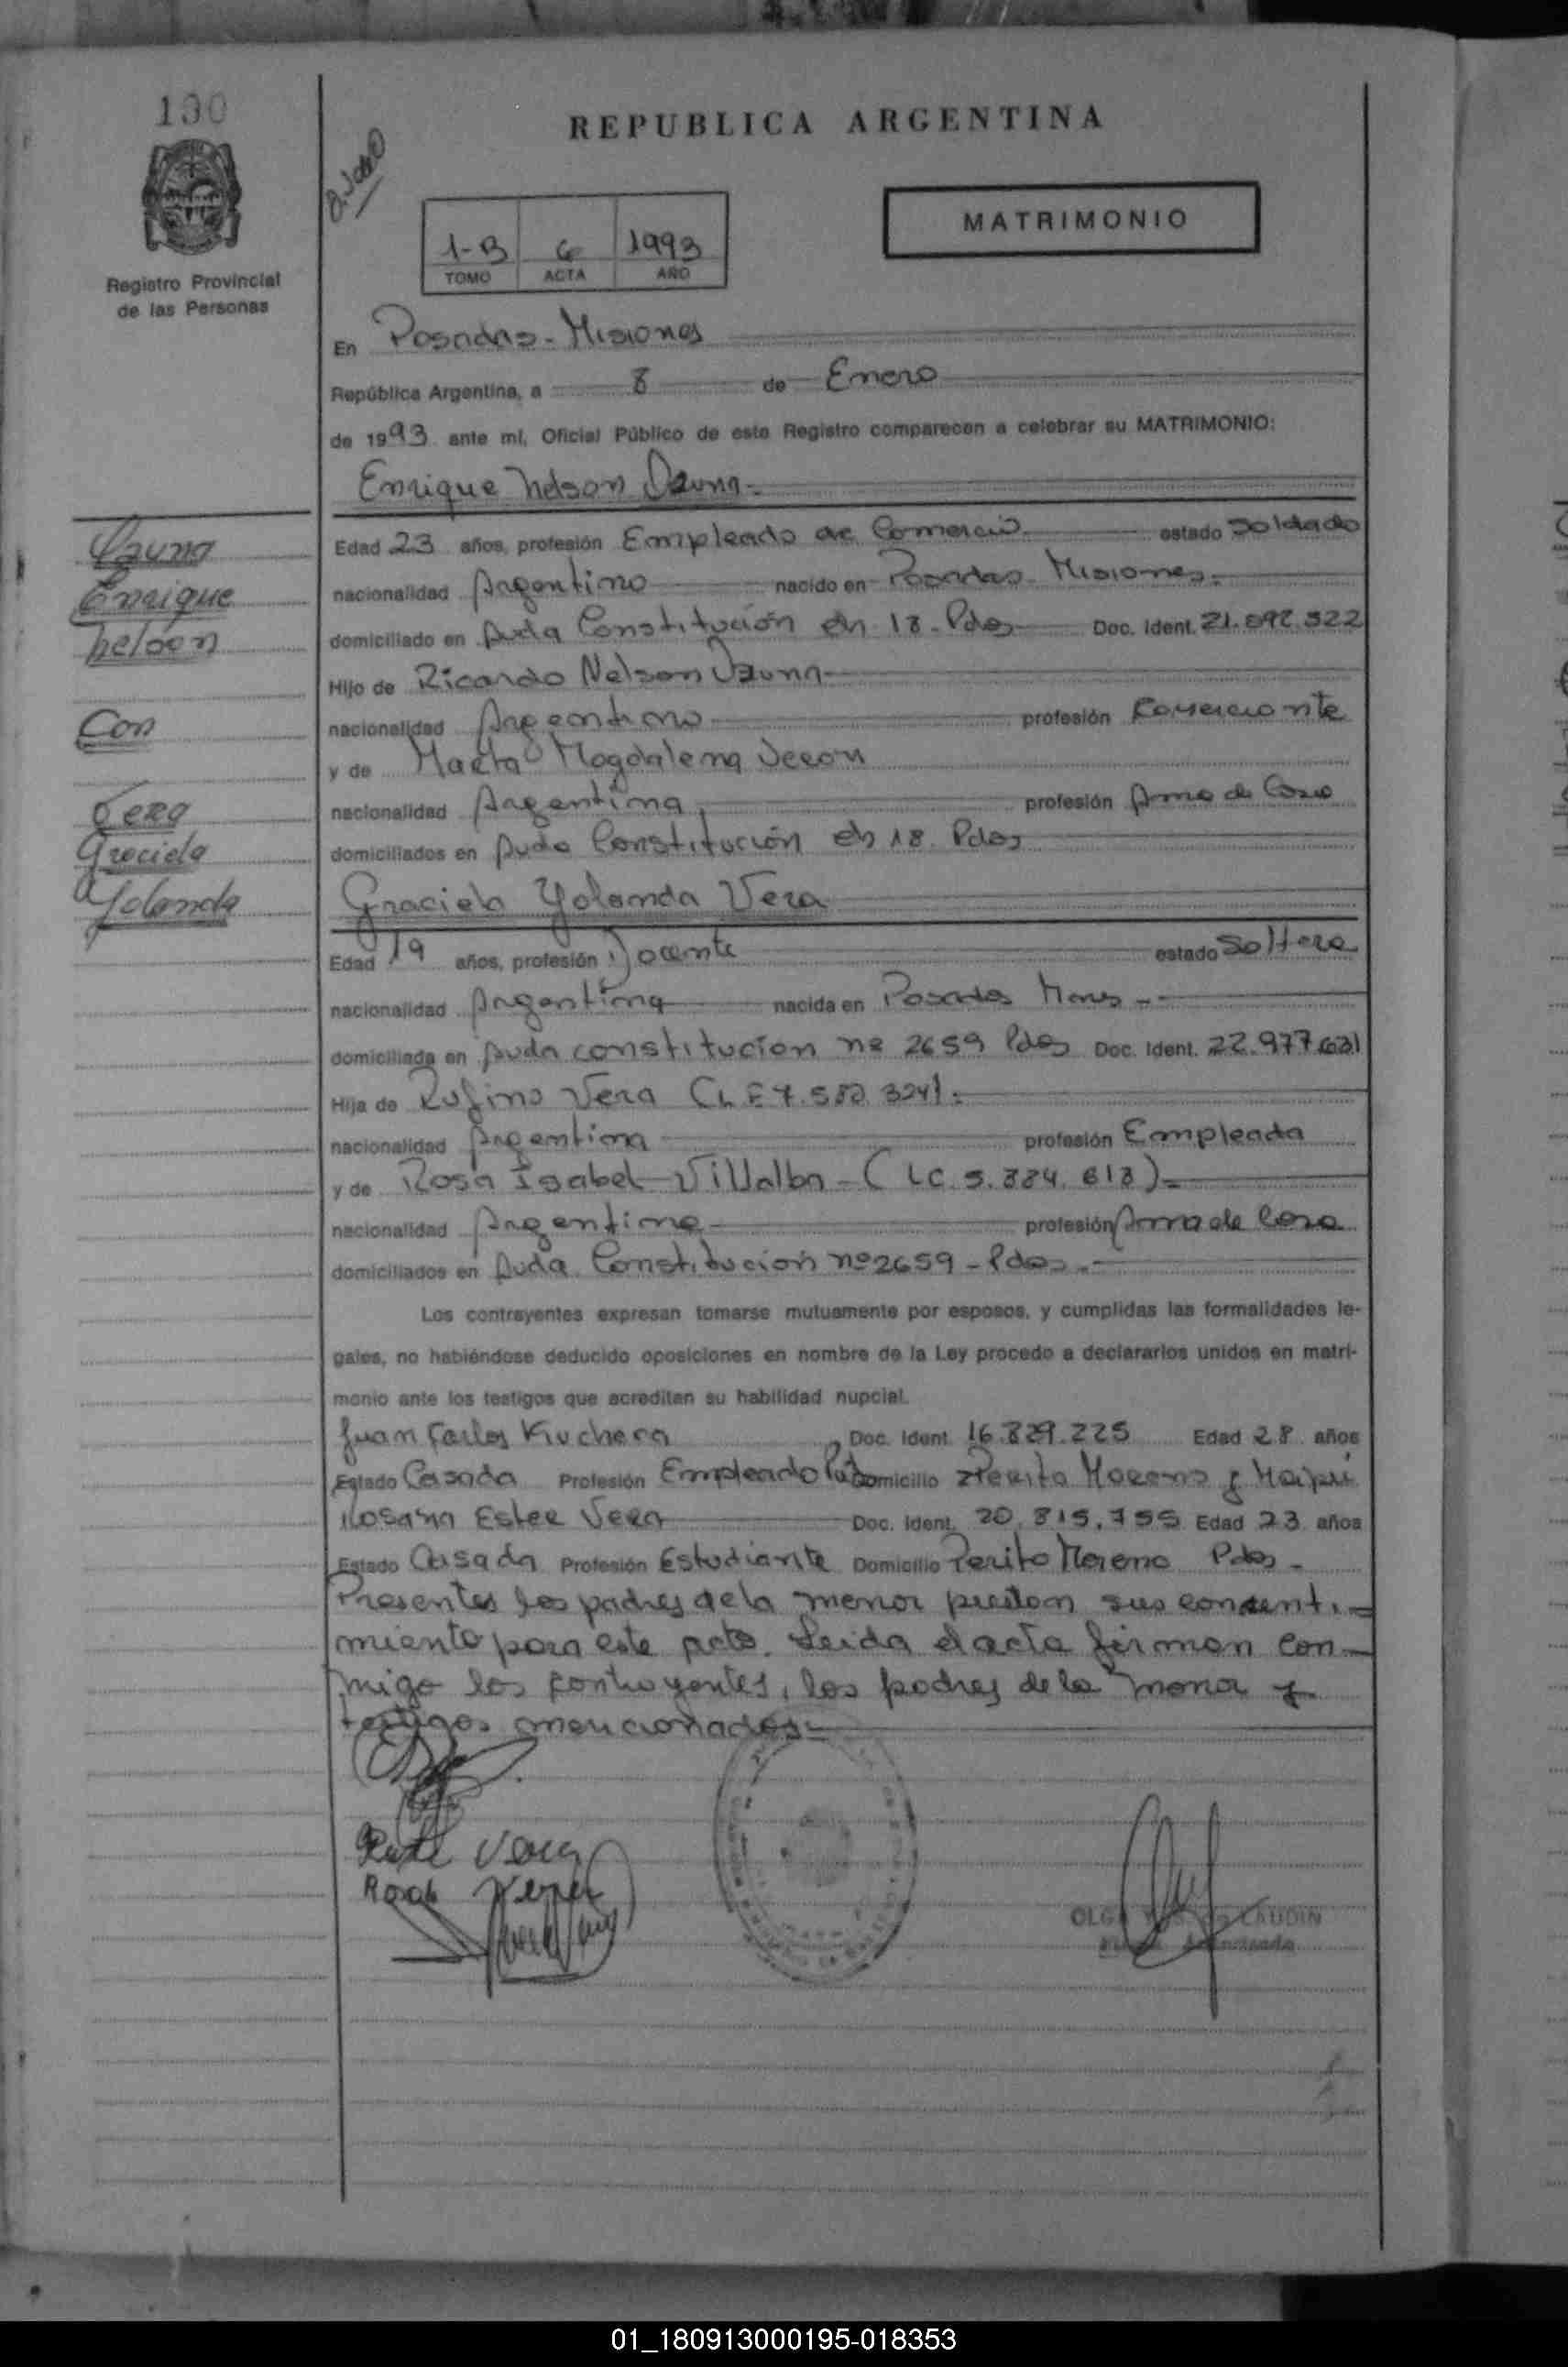 190
REPUBLICA ARGENTINA
MATRIMONIO
1-B 6 1993
TOMO ACTA AÑO
Registro Provincial
de las Personas
En Posadas - Misiones
República Argentina, a 8 de Enero
de 1993 ante mi, Oficial Público de este Registro comparecen a celebrar su MATRIMONIO:
Enrique Nelson Ozuna
Ozuna
Enrique
Nelson
Con
Vera
Graciela
Yolanda
Edad 23 años, profesión Empleado de Comercio estado Soldado
nacionalidad Argentino nacido en Posadas Misiones.
domiciliado en Avda Constitución ch 18 - Pdas Doc. Ident. 21.092.522
Hijo de Ricardo Nelson Ozuna
nacionalidad Argentino profesión Comerciante
y de Marta Magdalena Veron
nacionalidad Argentina profesión Ama de Casa
domiciliados en Avda Constitución ch 18. Pdas
Graciela Yolanda Vera
Edad 19 años, profesión Docente estado Soltera
nacionalidad Argentina nacida en Posadas Mnes
domiciliada en Avda constitucion nº 2659 Pdas Doc. Ident. 22.977.631
Hija de Rufino Vera (L.E 7.582.324).
nacionalidad Argentina profesión Empleada
y de Rosa Isabel Villalba - (LC. 5.884.618)
nacionalidad Argentina profesión Ama de Casa
domiciliados en Avda. Constitución nº 2659 - Pdas.
Los contrayentes expresan tomarse mutuamente por esposos, y cumplidas las formalidades le-
gales, no habiéndose deducido oposiciones en nombre de la Ley procedo a declararlos unidos en matri-
monio ante los testigos que acreditan su habilidad nupcial.
Juan Carlos Kuchera Doc. Ident. 16.829.225 Edad 28 años
Estado Casado Profesión Empleado Domicilio Perito Moreno y Maipú
Rosana Ester Vera Doc. Ident. 20.815.755 Edad 23 años
Estado Casada Profesión Estudiante Domicilio Perito Moreno Pdas -
Presentes los padres de la menor prestan sus consenti-
miento para este acto. Leida el acta firman con-
migo los contrayentes, los padres de la menor y
testigos mencionados
Vera
OLGA LAUDIN
01_180913000195-018353